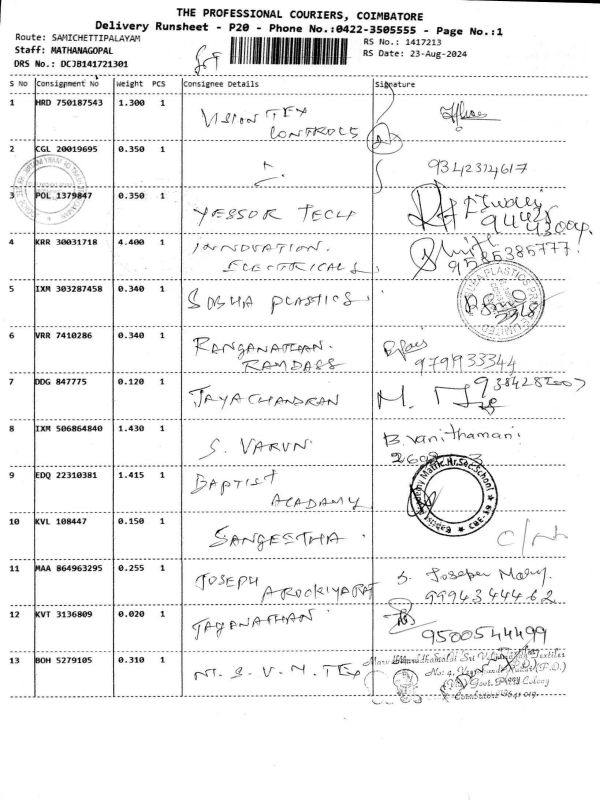 THE PROFESSIONAL COURIERS, COIMBATORE
Delivery Runsheet - P20 - Phone No.:0422-3505555 - Page No.:1
Route: SAMICHETTIPALAYAM
RS No.: 1417213
Staff: MATHANAGOPAL
RS Date: 23-Aug-2024
DRS No.: DCJB141721301
S No Consignment No Weight PCS Consignee Details Signature
1 HRD 750187543 1.300 1 VISION TEX
CONTROLS
2 CGL 20019695 0.350 1 9342314617
3 POL 1379847 0.350 1 YESSOR TECH
4 KRR 30031718 4.400 1 INNOVATION.
ELECTRICALS 9585385777.
5 IXM 303287458 0.340 1 SOBHA PLASTICS.
6 VRR 7410286 0.340 1 RANGANATHAN.
RAMDASS 979933344
7 DDG 847775 0.120 1 JAYACHANDRAN M.
8 IXM 506864840 1.430 1 S. VARUN. B. Vanithamani
9 EDQ 22310381 1.415 1 BAPTIST
ACADAMY
Baptist Academy Matric.Hr.Sec.School
CBE-19
10 KVL 108447 0.150 1 SANGEETHA.
11 MAA 864963295 0.255 1 JOSEPH
AROOKIYARAJ S. Joseph Mary.
9994344462
12 KVT 3136809 0.020 1 JAGANATHAN
9500544499
13 BOH 5279105 0.310 1 M. S. V. M. TEX
Marudhamalai Sri
Govt. Colony